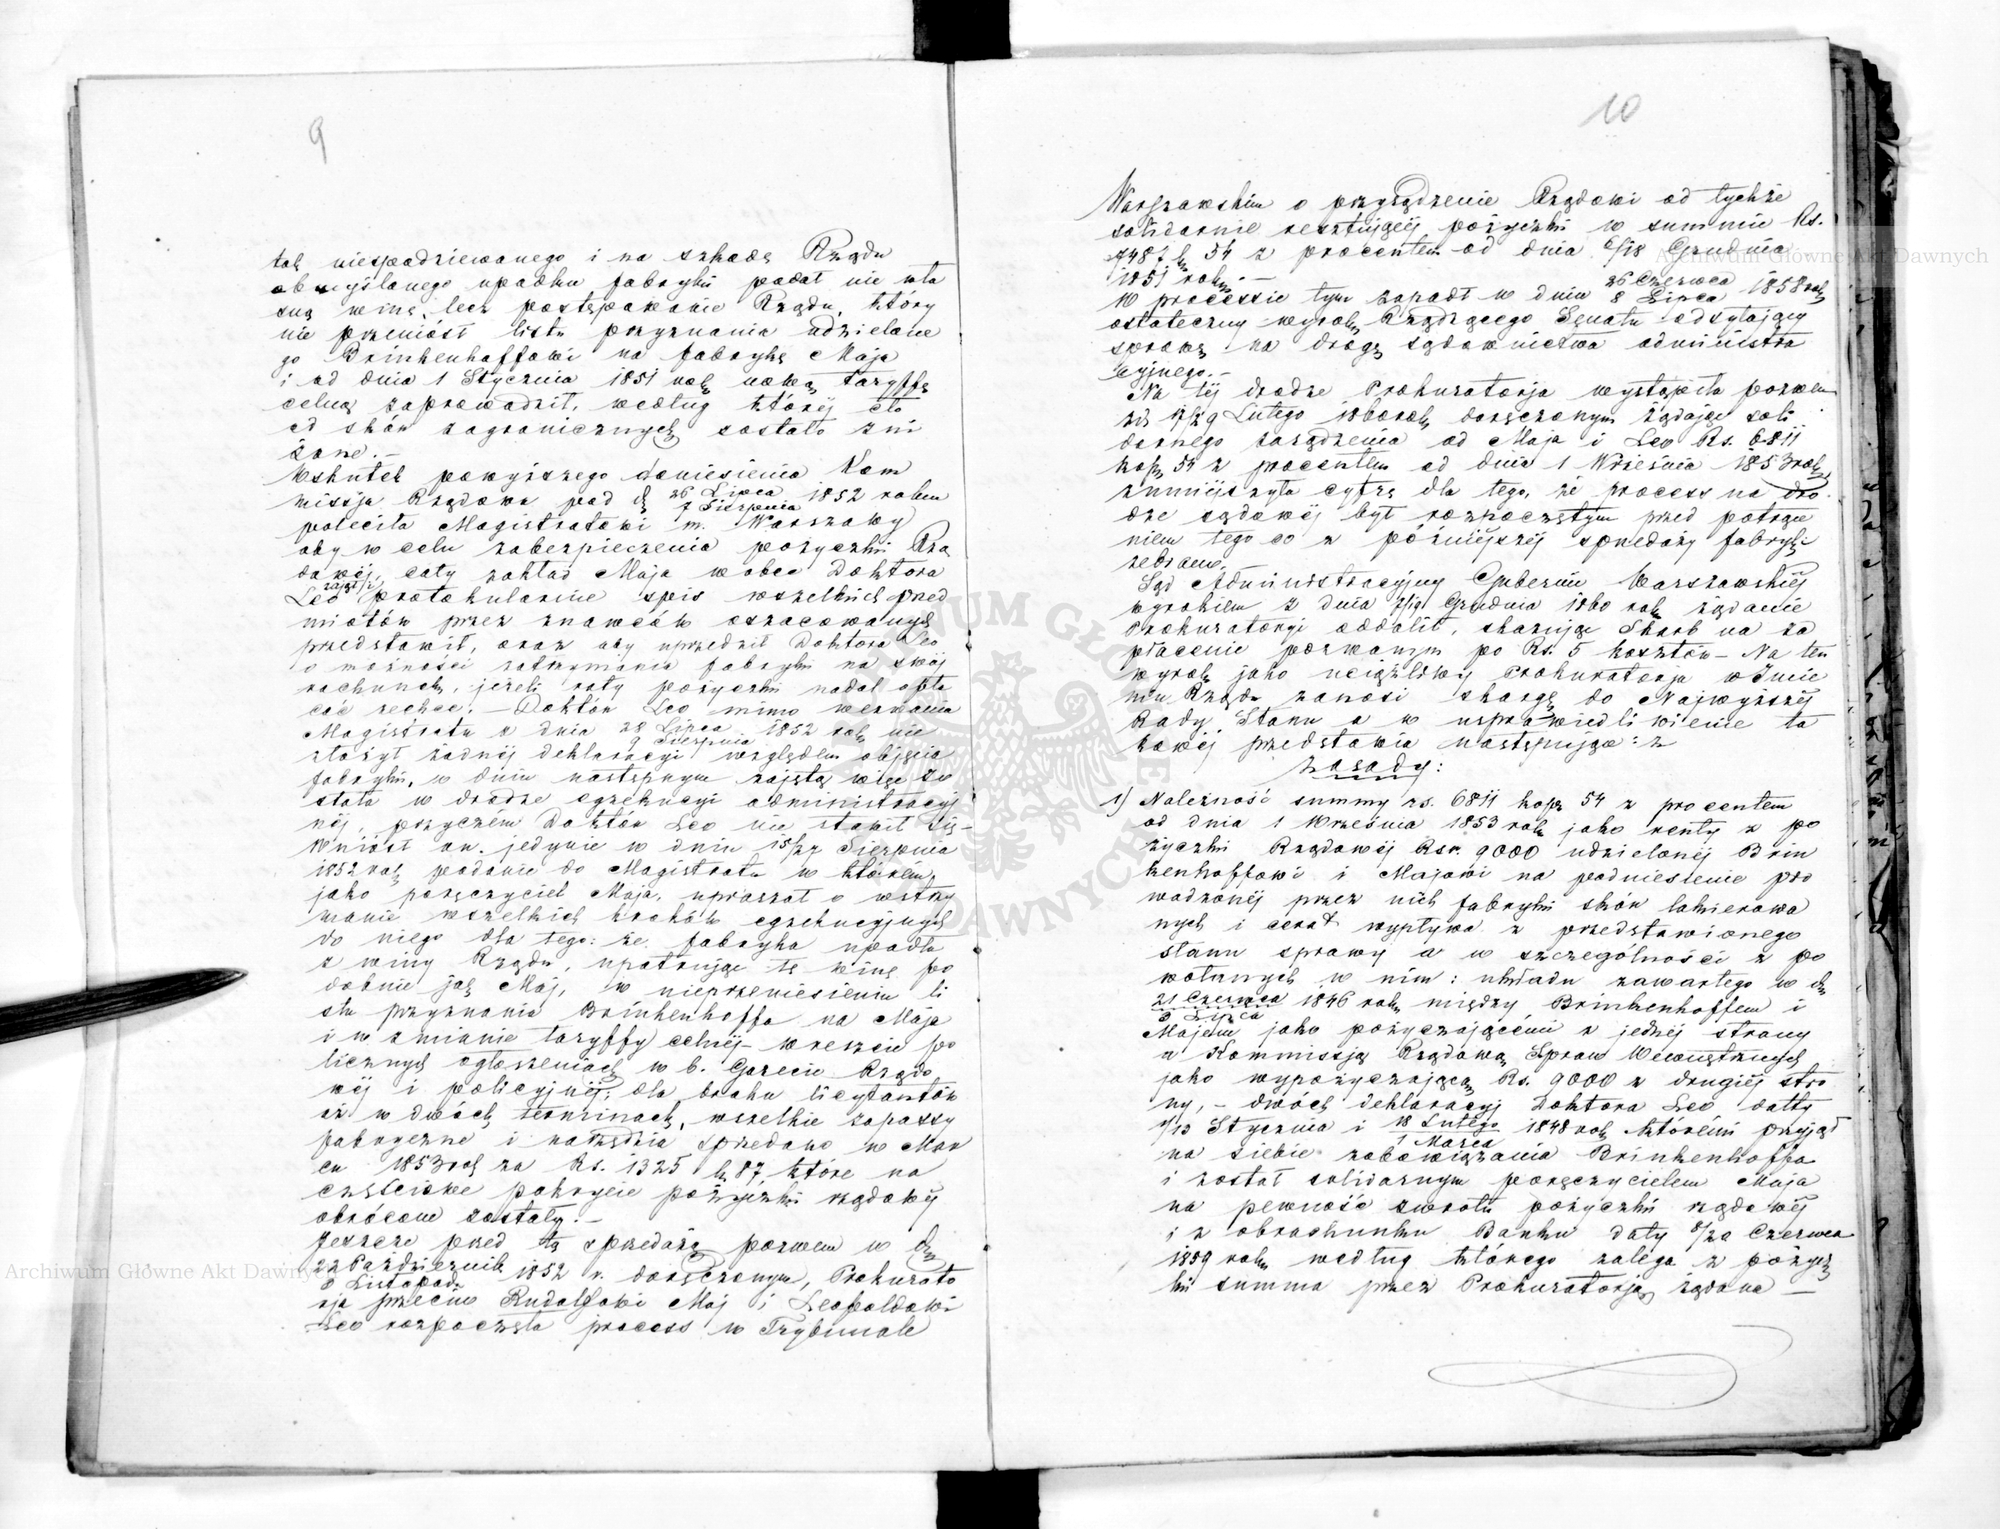 9
tak niespodziewanego i na szkodę Rządu
obmyślanego upadku fabryki podał nie wła
sną winę, lecz postępowanie Rządu, który
nie przeniósł listu przyznania udzielone
go Brinkenhoffowi na fabrykę Maja
i od dnia 1 Stycznia 1851 rok nową taryffę
celną zaprowadził, według której cło
od skór zagranicznych zostało zni
żone.—
Wskutek powyższego doniesienia Kom
missja Rządowa pod d 26 Lipca / 7 Sierpnia 1852 rokiem
poleciła Magistratowi m. Warszawy
aby w celu zabezpieczenia pożyczki Rzą
dowéj, cały zakład Maja wobec Doktora
Leo zajął i protokularnie spis wszelkich przed
miotów przez znawców oszacowanych
przedstawił, oraz aby uprzedził Doktora Leo
o możności zatrzymania fabryki na swój
rachunek, jeżeli raty pożyczki nadal opła
cać zechce.— Doktór Leo mimo wezwania
Magistratu z dnia 28 Lipca / 9 Sierpnia 1852 rok nie
złożył żadnéj deklaracyi względem objęcia
fabryki, w dniu następnym zajętą więc zo
stała w drodze egzekucyi administracyj
néj, przyczem Doktór Leo nie stawił się—
Wniósł on jedynie w dniu 15/27 Sierpnia
1852 rok podanie do Magistratu w którém,
jako poręczyciel Maja, upraszał o wstrzy
manie wszelkich kroków egzekucyjnych
do niego dla tego: że fabryka upadła
z winy Rządu, upatrując tę winę po
dobnie jak Maj, w nieprzeniesieniu li
stu przyznania Brinkenhoffa na Maja
i w zmianie taryffy celnéj— wreszcie po
licznych ogłoszeniach w b. Gazecie Rządo
wéj i policyjnéj, dla braku licytantów
aż w dwóch terminach, wszelkie zapassy
fabryczne i narzędzia sprzedano w Mar
cu 1853 rok za Rs. 1325 k 87, które na
częściowe pokrycie pożyczki rządowéj
obrócone zostały.—
Jeszcze przed tą sprzedażą pozwem w dn
27 Październik / 8 Listopada 1852 r. doręczonym, Prokurato
rja przeciw Rudolfowi Maj i Leopoldowi
Leo rozpoczęła process w Trybunale
10
Warszawskim o przysądzenie Rządowi od tychże
solidarnie resztującéj pożyczki w summie Rs.
7487 k 54 z procentem od dnia 6/18 Grudnia
1851 rok.—
W processie tym zapadł w dniu 26 Czerwca / 8 Lipca 1858 rok
ostateczny wyrok Rządzącego Senatu odsyłający
sprawę na drogę sądownictwa administra
cyjnego.—
Na téj drodze Prokuratorja wystąpiła pozwem
zd 17/29 Lutego 1860 rok doręczonym żądając soli
darnego zasądzenia od Maja i Leo Rs. 6811
kop 54 z procentem od dnia 1 Września 1853 rok,
zmniejszyła cyfrę dla tego, że process na dro
dze sądowéj był rozpoczętym przed potrące
niem tego co z późniéjszéj sprzedaży fabryki
zebrano.
Sąd Administracyjny Gubernii Warszawskiéj
wyrokiem z dnia 7/19 Grudnia 1860 rok żądanie
Prokuratoryi oddalił, skazując Skarb na za
płacenie pozwanym po Rs. 5 kosztów— Na ten
wyrok jako uciążliwy Prokuratorja w Imie
niu Rządu zanosi skargę do Najwyższéj
Rady Stanu a w usprawiedliwienie ta
kowéj przedstawia następujące:
zasady:
1) Należność summy rs. 6811 kop 54 z procentem
od dnia 1 Września 1853 rok jako reszty z po
życzki Rządowéj Rsr. 9000 udzielonéj Brin
kenhoffowi i Majowi na podniesienie pro
wadzonéj przez nich fabryki skór lakierowa
nych i cerat wypływa z przedstawionego
stanu sprawy a w szczególności z po
wołanych w nim: układu zawartego w dn
21 Czerwca / 3 Lipca 1846 rok między Brinkenhoffem i
Majem jako pożyczającémi z jednéj strony
a Kommissją Rządową Spraw Wewnętrznych
jako wypożyczającą Rs. 9000 z drugiéj stro
ny,— dwóch deklaracyj Doktora Leo datty
1/13 Stycznia i 18 Lutego / 1 Marca 1848 rok któremi przyjął
na siebie zobowiązania Brinkenhoffa
i został solidarnym poręczycielem Maja
na pewność zwrotu pożyczki rządowéj
i z obrachunku Banku daty 8/20 Czerwca
1859 rok według którego zalega z pożycz
ki summa przez Prokuratorję żądana —